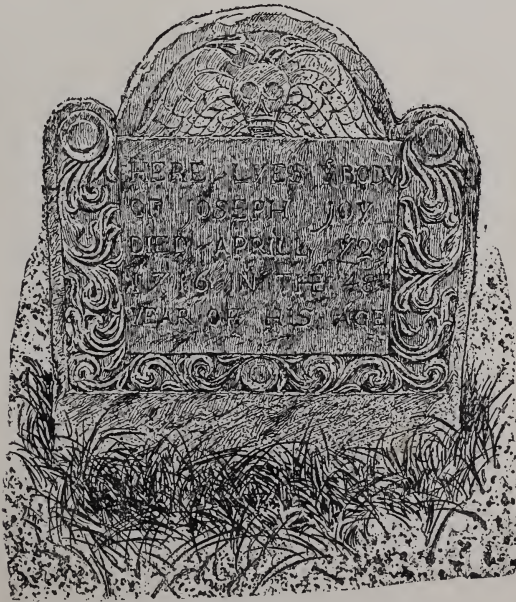 HERE LYES BODY
OF JOSEPH JOY
DIED APRILL
1716 IN THE
YEAR OF HIS AGE